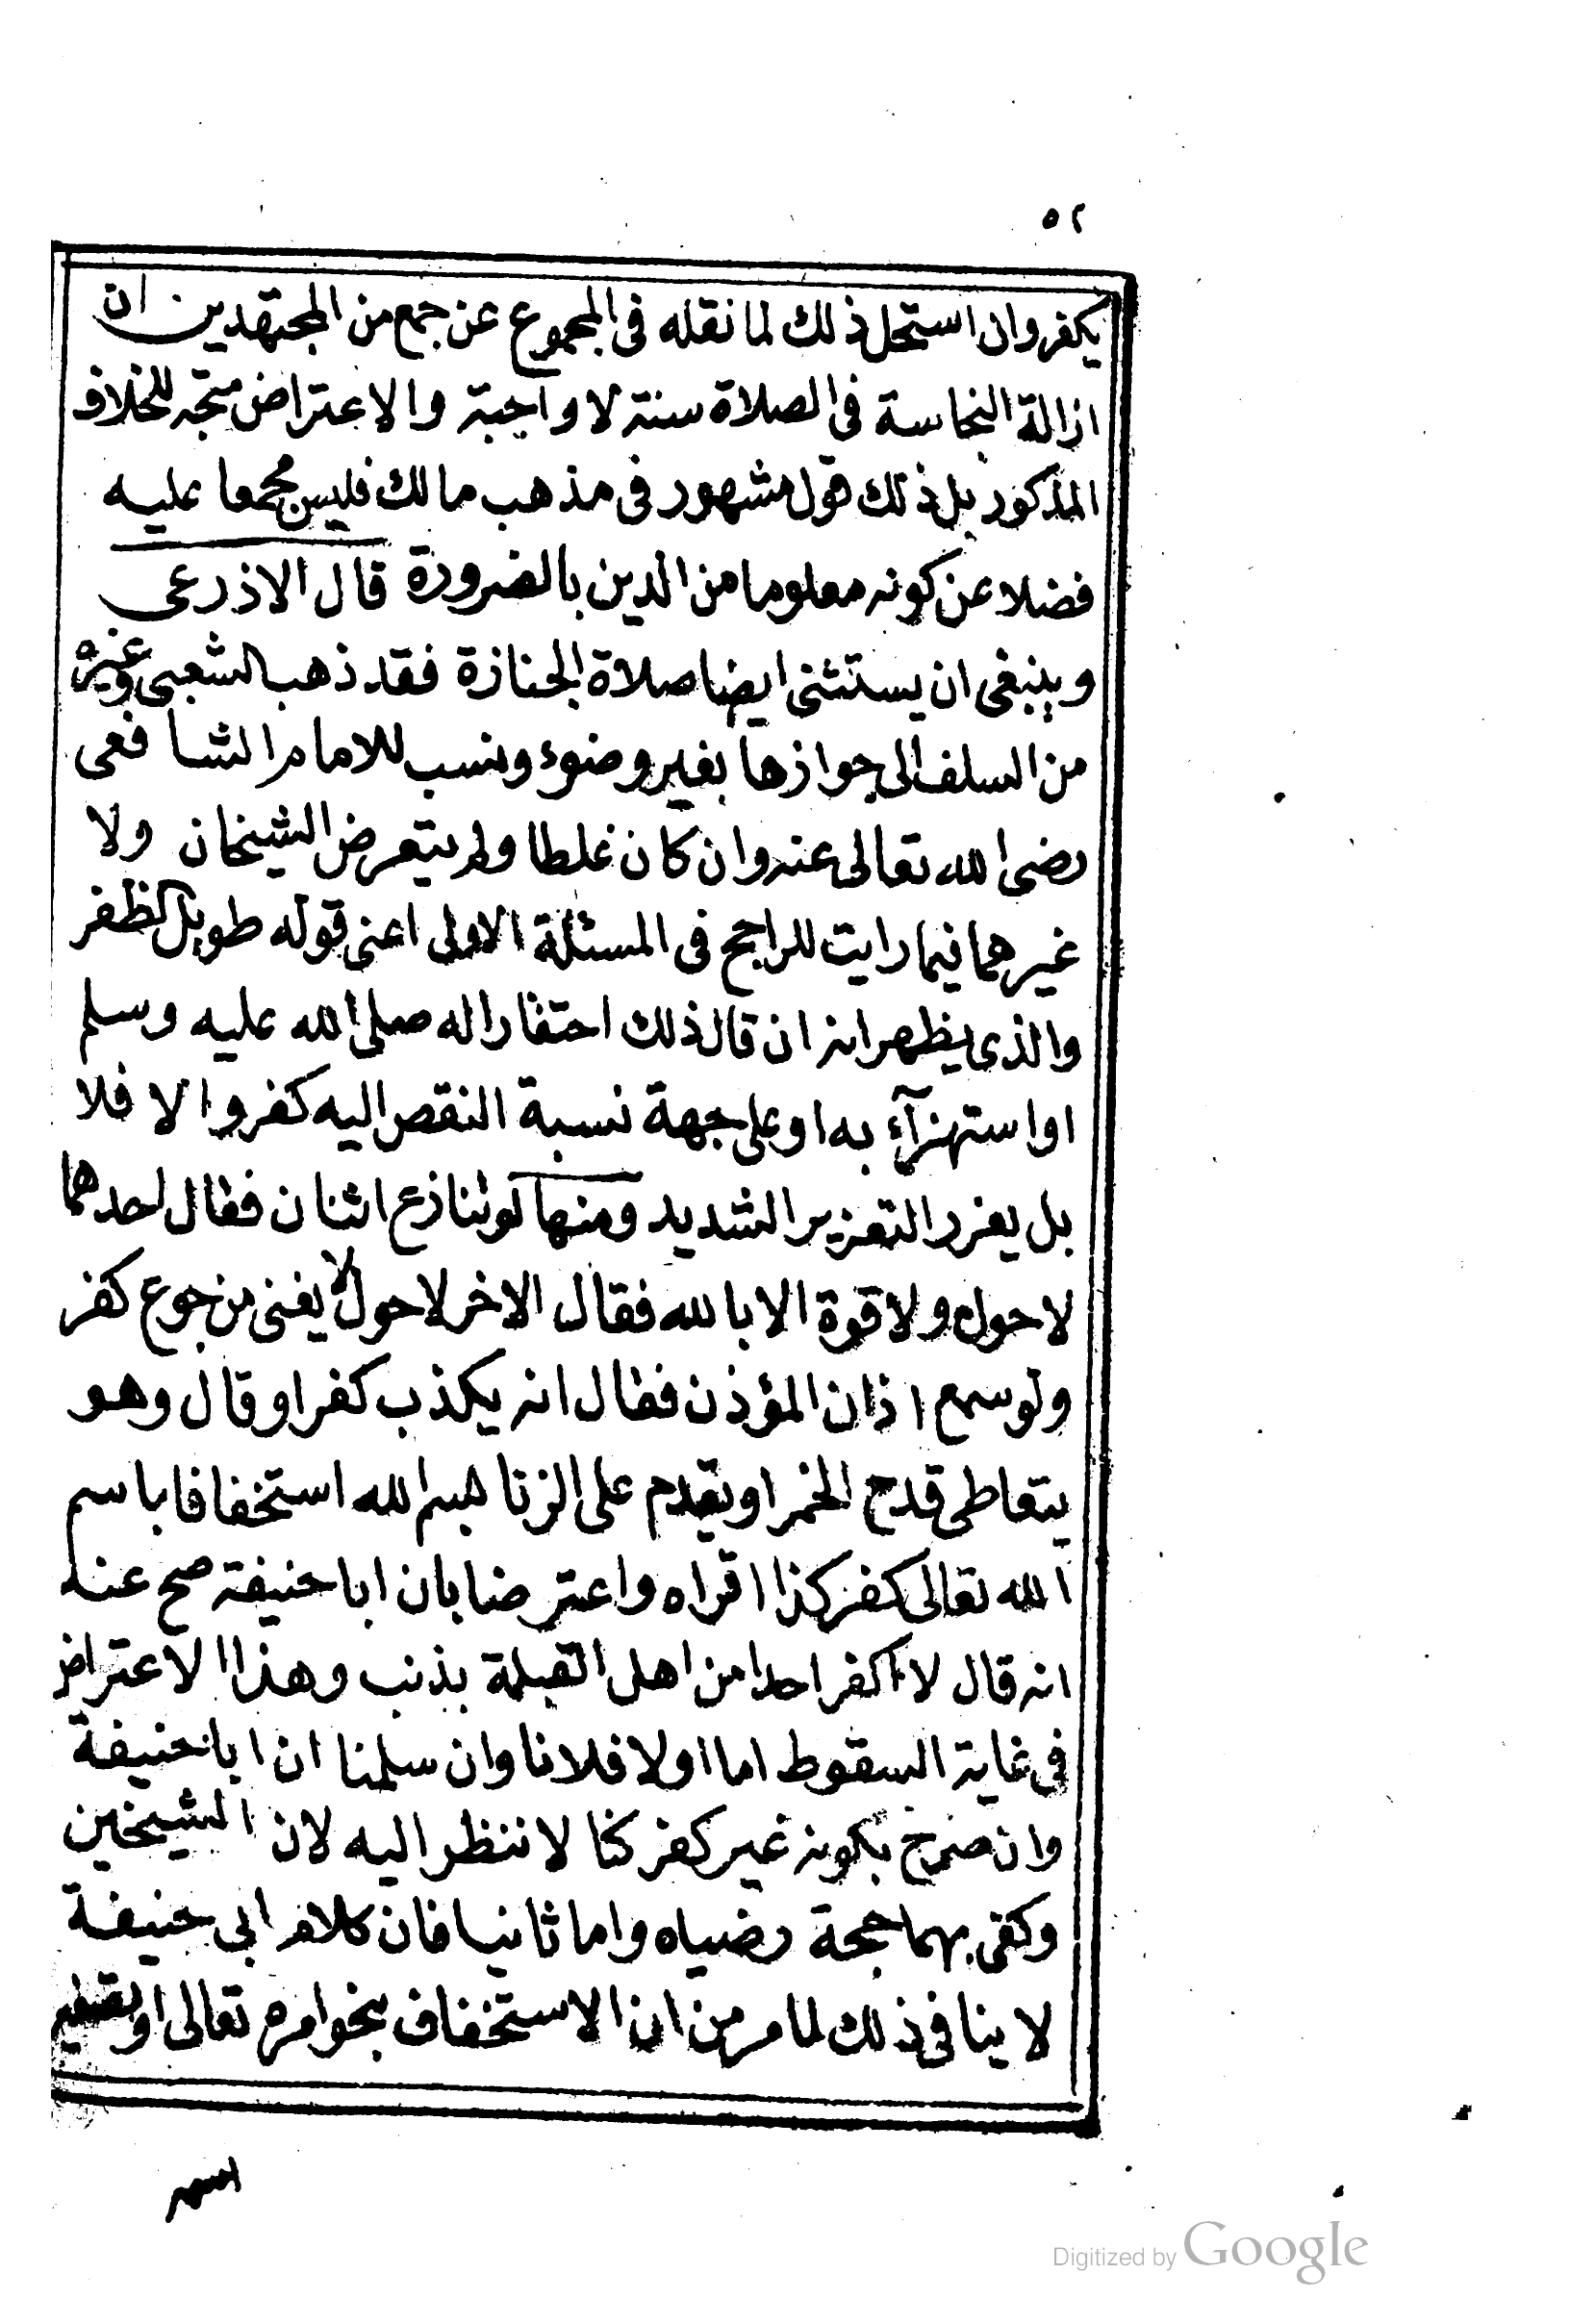 ٥٢
يكفر وان استحل ذلك لما نقله فى المجموع عن جمع من المجتهدين ان
ازالة النجاسة فى الصلاة سنة لا واجبة والاعتراض متجه للخلاف
المذكور بل ذلك قول مشهور فى مذهب مالك فليس مجمعا عليه
فضلا عن كونه معلوما من الدين بالضرورة قال الاذرعى
وينبغى ان يستثنى ايضا صلاة الجنازة فقد ذهب الشعبى وغيره
من السلف الى جوازها بغير وضوء ونسب للامام الشافعى
رضى الله تعالى عنه وان كان غلطا ولم يتعرض الشيخان ولا
غيرهما فيما رايت للراجح فى المسئلة الاولى اعنى قوله طويل الظفر
والذى يظهر انه ان قال ذلك احتقارا له صلى الله عليه وسلم
او استهزآء به او على جهة نسبة النقص اليه كفر والا فلا
بل يعزر التعزير الشديد ومنها لو تنازع اثنان فقال احدهما
لا حول ولا قوة الا بالله فقال الاخر لا حول لا يغنى من جوع كفر
ولو سمع اذان المؤذن فقال انه يكذب كفر او قال وهو
يتعاطى قدح الخمر او يقدم على الزنا بسم الله استخفافا باسم
الله تعالى كفر كذا اقراه واعترضا بان ابا حنيفة صح عنه
انه قال لا اكفر احدا من اهل القبلة بذنب وهذا الاعتراض
فى غاية السقوط اما اولا فلانا وان سلمنا ان ابا حنيفة
وان صرح بكونه غير كفر كنا لا ننظر اليه لان الشيخين
وكفى بهما حجة رضياه واما ثانيا فان كلام ابى حنيفة
لا ينافى ذلك لما مر من ان الاستخفاف بنحو امره تعالى او تصغير
اسمه
Digitized by Google